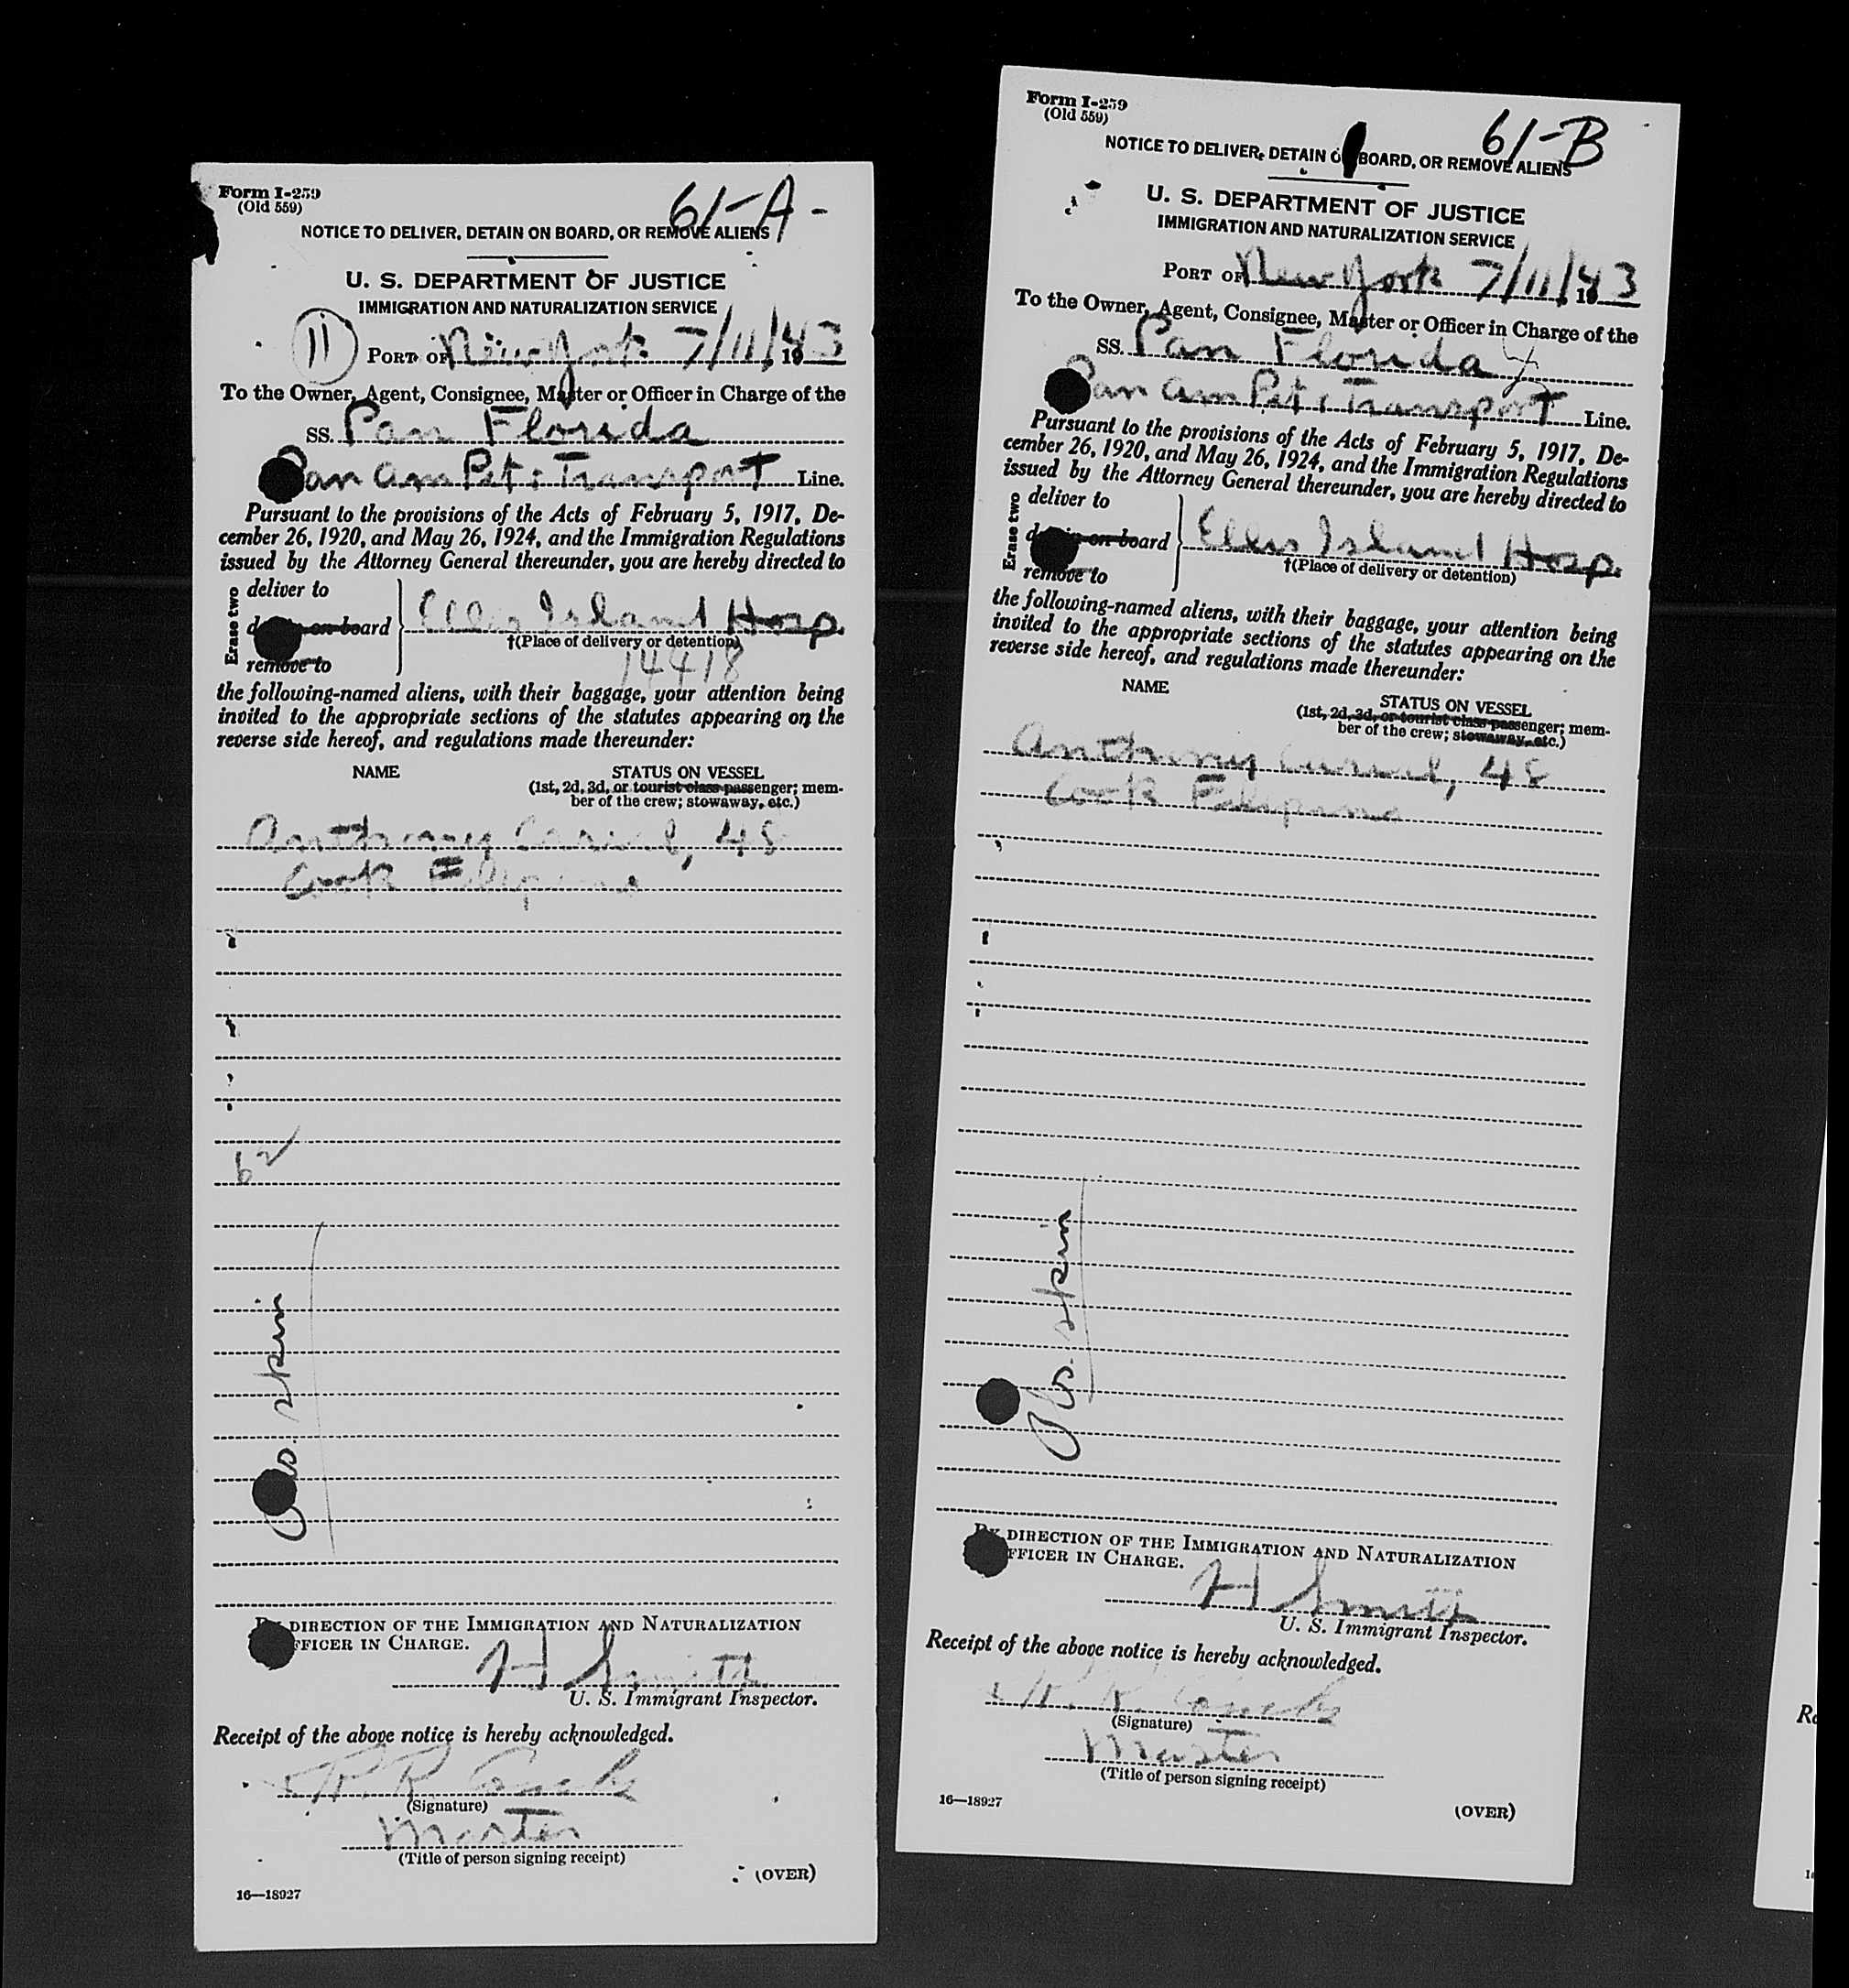 Form I-259
(Old 559)
61-A-
NOTICE TO DELIVER, DETAIN ON BOARD, OR REMOVE ALIENS
U. S. DEPARTMENT OF JUSTICE
IMMIGRATION AND NATURALIZATION SERVICE
11
PORT OF New York 7/11/1943
To the Owner, Agent, Consignee, Master or Officer in Charge of the
SS. Pan Florida
Pan Am Pet & Transport Line.
Pursuant to the provisions of the Acts of February 5, 1917, De-
cember 26, 1920, and May 26, 1924, and the Immigration Regulations
issued by the Attorney General thereunder, you are hereby directed to
Erase two
deliver to
detain on board
remove to
Ellis Island Hosp.
†(Place of delivery or detention)
14418
the following-named aliens, with their baggage, your attention being
invited to the appropriate sections of the statutes appearing on the
reverse side hereof, and regulations made thereunder:
NAME STATUS ON VESSEL
(1st, 2d, 3d, or tourist class passenger; mem-
ber of the crew; stowaway, etc.)
Anthony 48
Cook Filipino
62
Obs. skin
BY DIRECTION OF THE IMMIGRATION AND NATURALIZATION
OFFICER IN CHARGE.
H Smith
U. S. Immigrant Inspector.
Receipt of the above notice is hereby acknowledged.
(Signature)
Master
(Title of person signing receipt)
(OVER)
16—18927
Form I-259
(Old 559)
61-B
NOTICE TO DELIVER, DETAIN ON BOARD, OR REMOVE ALIENS
U. S. DEPARTMENT OF JUSTICE
IMMIGRATION AND NATURALIZATION SERVICE
PORT OF New York 7/11/1943
To the Owner, Agent, Consignee, Master or Officer in Charge of the
SS. Pan Florida
Pan Am Pet & Transport Line.
Pursuant to the provisions of the Acts of February 5, 1917, De-
cember 26, 1920, and May 26, 1924, and the Immigration Regulations
issued by the Attorney General thereunder, you are hereby directed to
Erase two
deliver to
detain on board
remove to
Ellis Island Hosp.
†(Place of delivery or detention)
the following-named aliens, with their baggage, your attention being
invited to the appropriate sections of the statutes appearing on the
reverse side hereof, and regulations made thereunder:
NAME STATUS ON VESSEL
(1st, 2d, 3d, or tourist class passenger; mem-
ber of the crew; stowaway, etc.)
Anthony 48
Cook Filipino
Obs. skin
BY DIRECTION OF THE IMMIGRATION AND NATURALIZATION
OFFICER IN CHARGE.
H Smith
U. S. Immigrant Inspector.
Receipt of the above notice is hereby acknowledged.
(Signature)
Master
(Title of person signing receipt)
16—18927
(OVER)